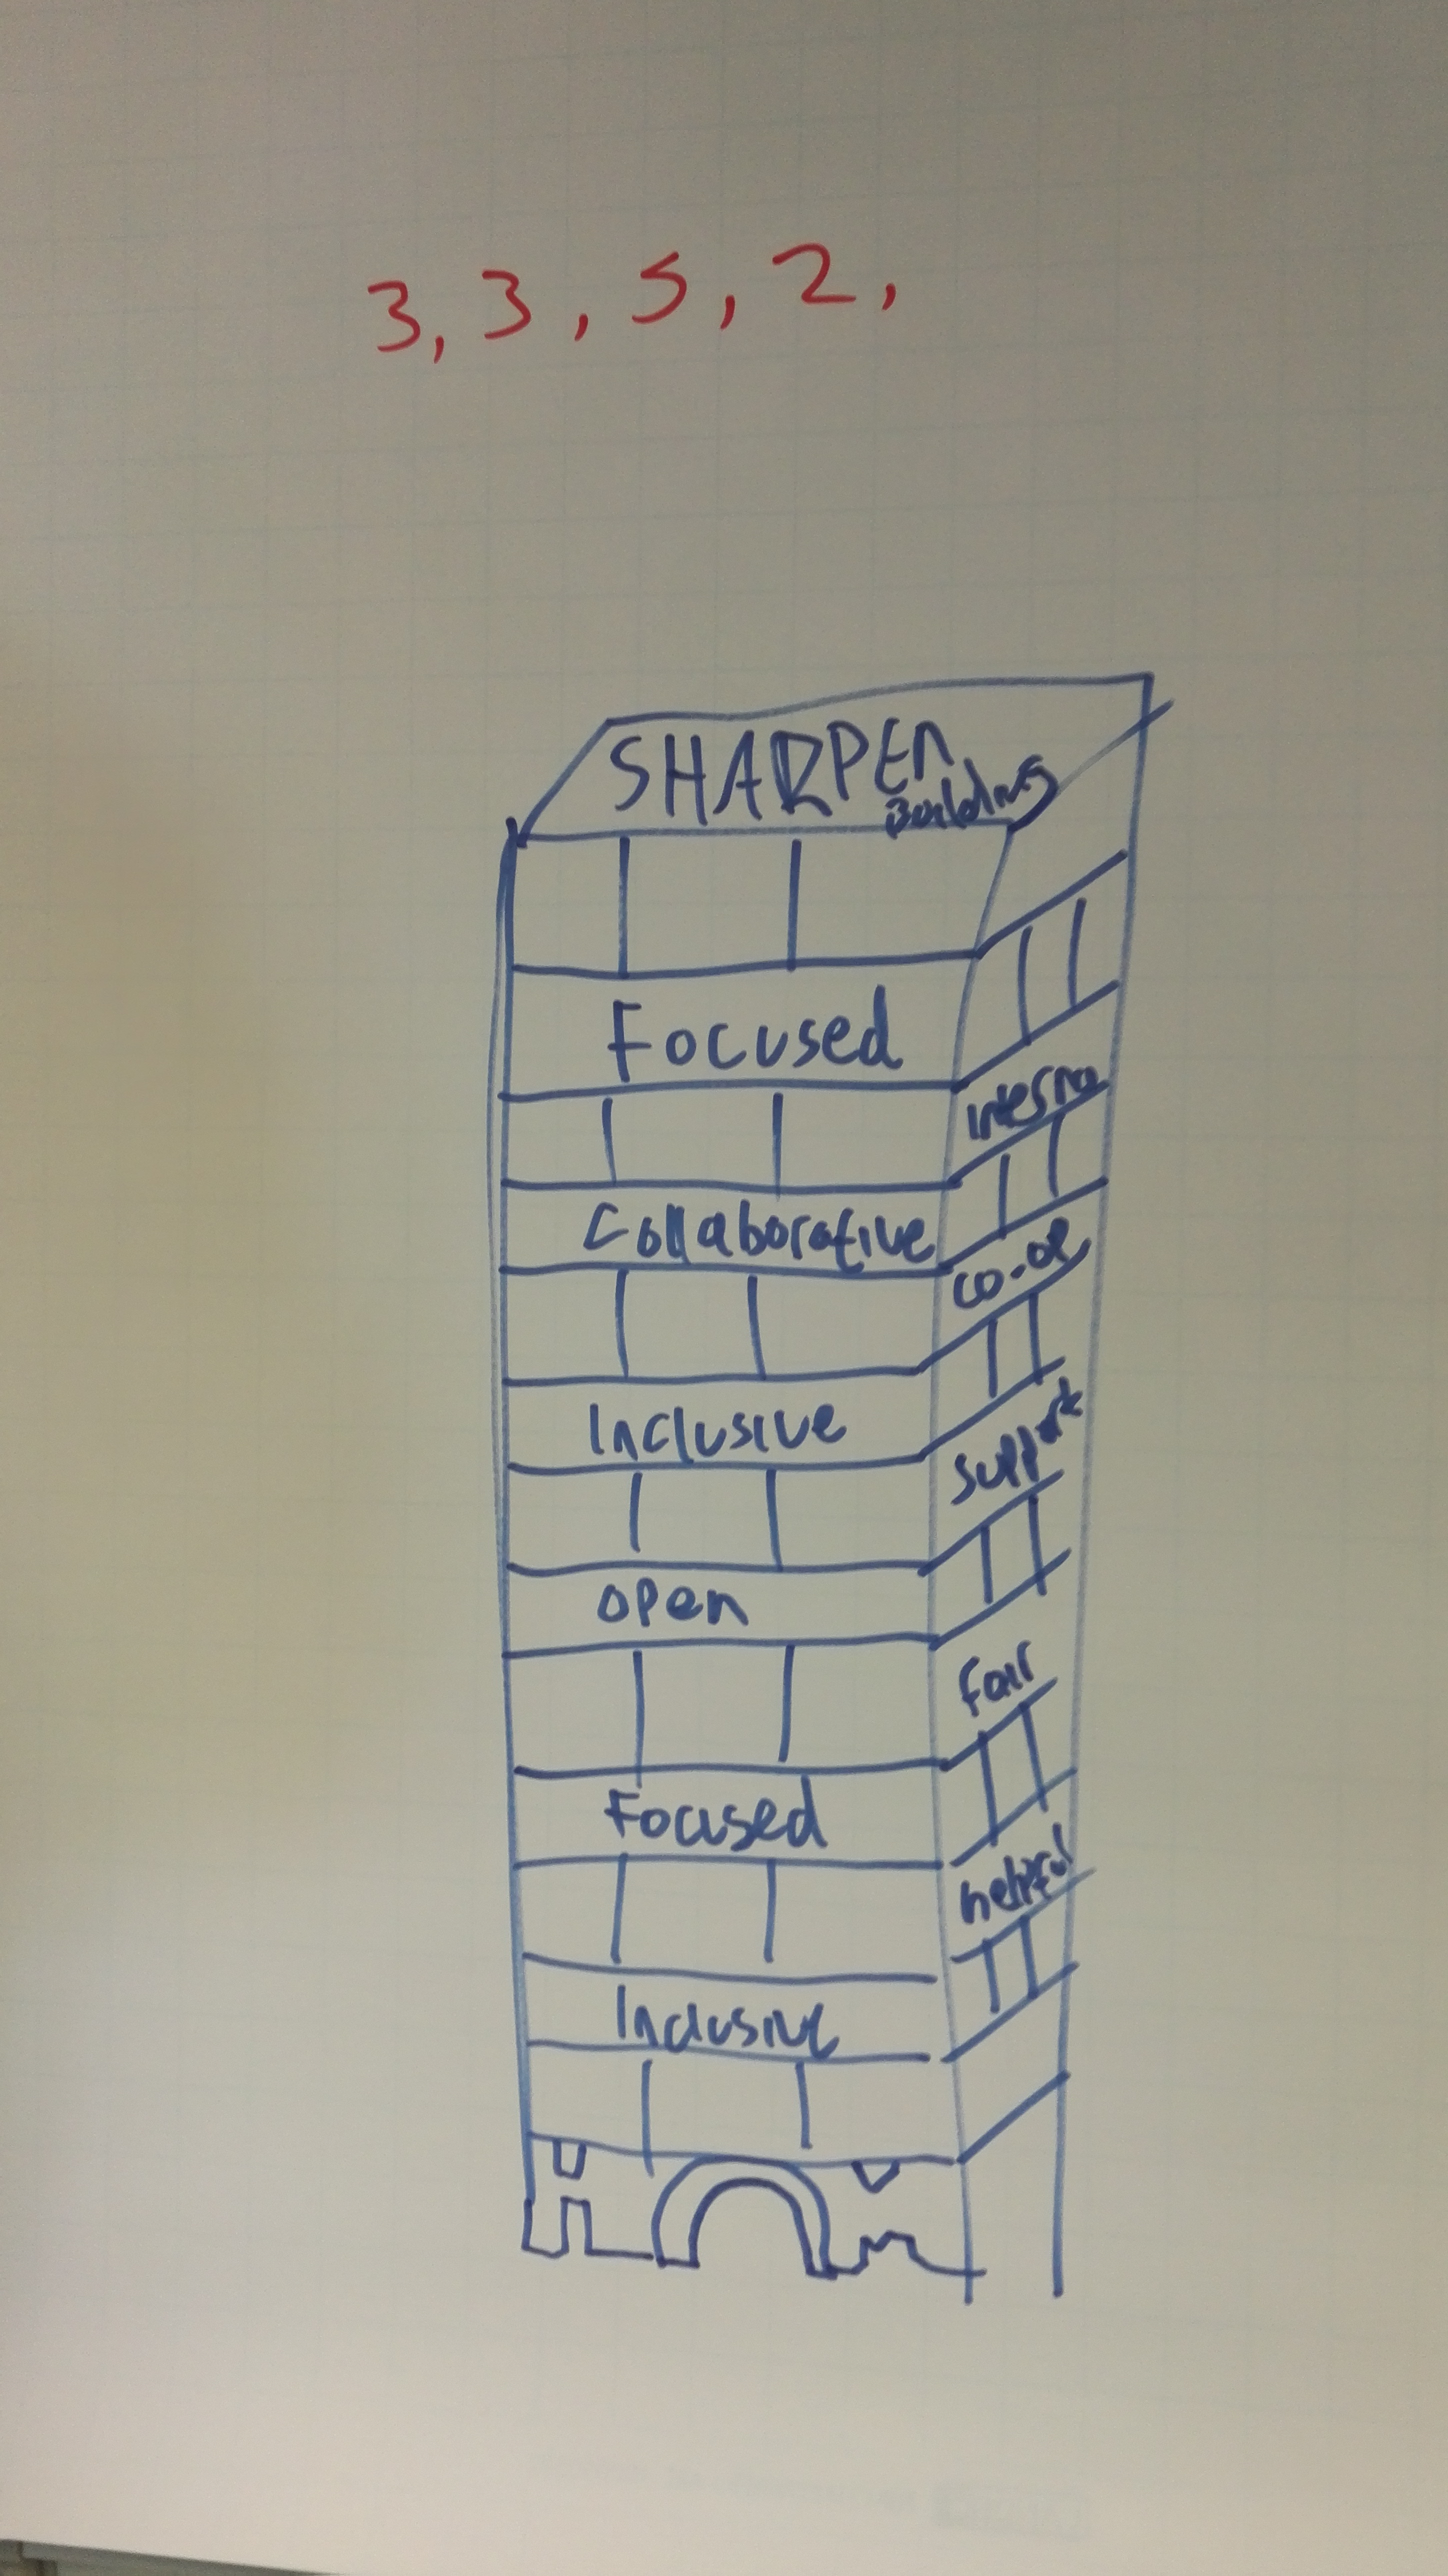 3, 3, 5, 2,
SHARPEN
Building
Focused
Collaborative
co-op
Inclusive
Support
open
fair
Focused
helpful
Inclusive